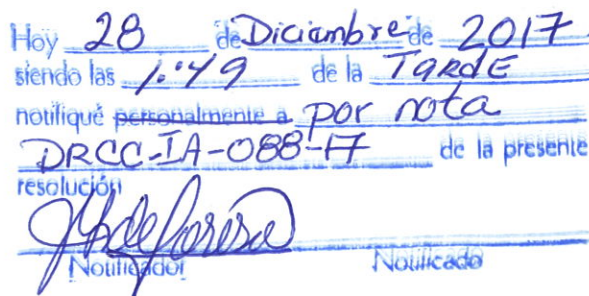 Hoy 28 de Diciembre de 2017
siendo las 1:49 de la TARDE
notifiqué personalmente a por nota
DRCC-IA-088-17 de la presente
resolución
Notificador Notificado